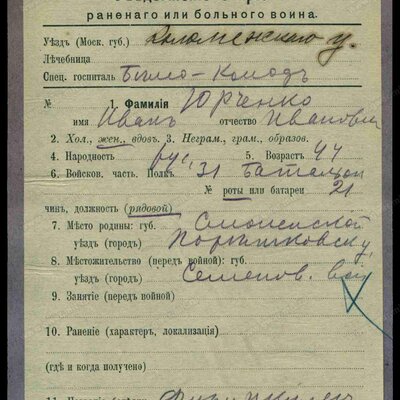 раненаго или больного воина.
Уѣздъ (Моск. губ.) Коломенского у.
Лѣчебница
Спец. госпиталь Бѣло-Колодъ
№ 1. Фамилія Юрченко
имя Иванъ отчество Иванович
2. Хол., жен., вдов. 3. Неграм., грам., образов.
4. Народность рус, 5. Возрастъ 44
6. Войсков. часть. Полкъ 31 баталион
№ роты или батареи 21
чинъ, должность (рядовой)
7. Мѣсто родины: губ. Смоленской
уѣздъ (городъ)
8. Мѣстожительство (передъ войной): губ.
уѣздъ (городъ) Семенов. вол
9. Занятіе (передъ войной)
10. Раненіе (характеръ, локализація)
(гдѣ и когда получено)